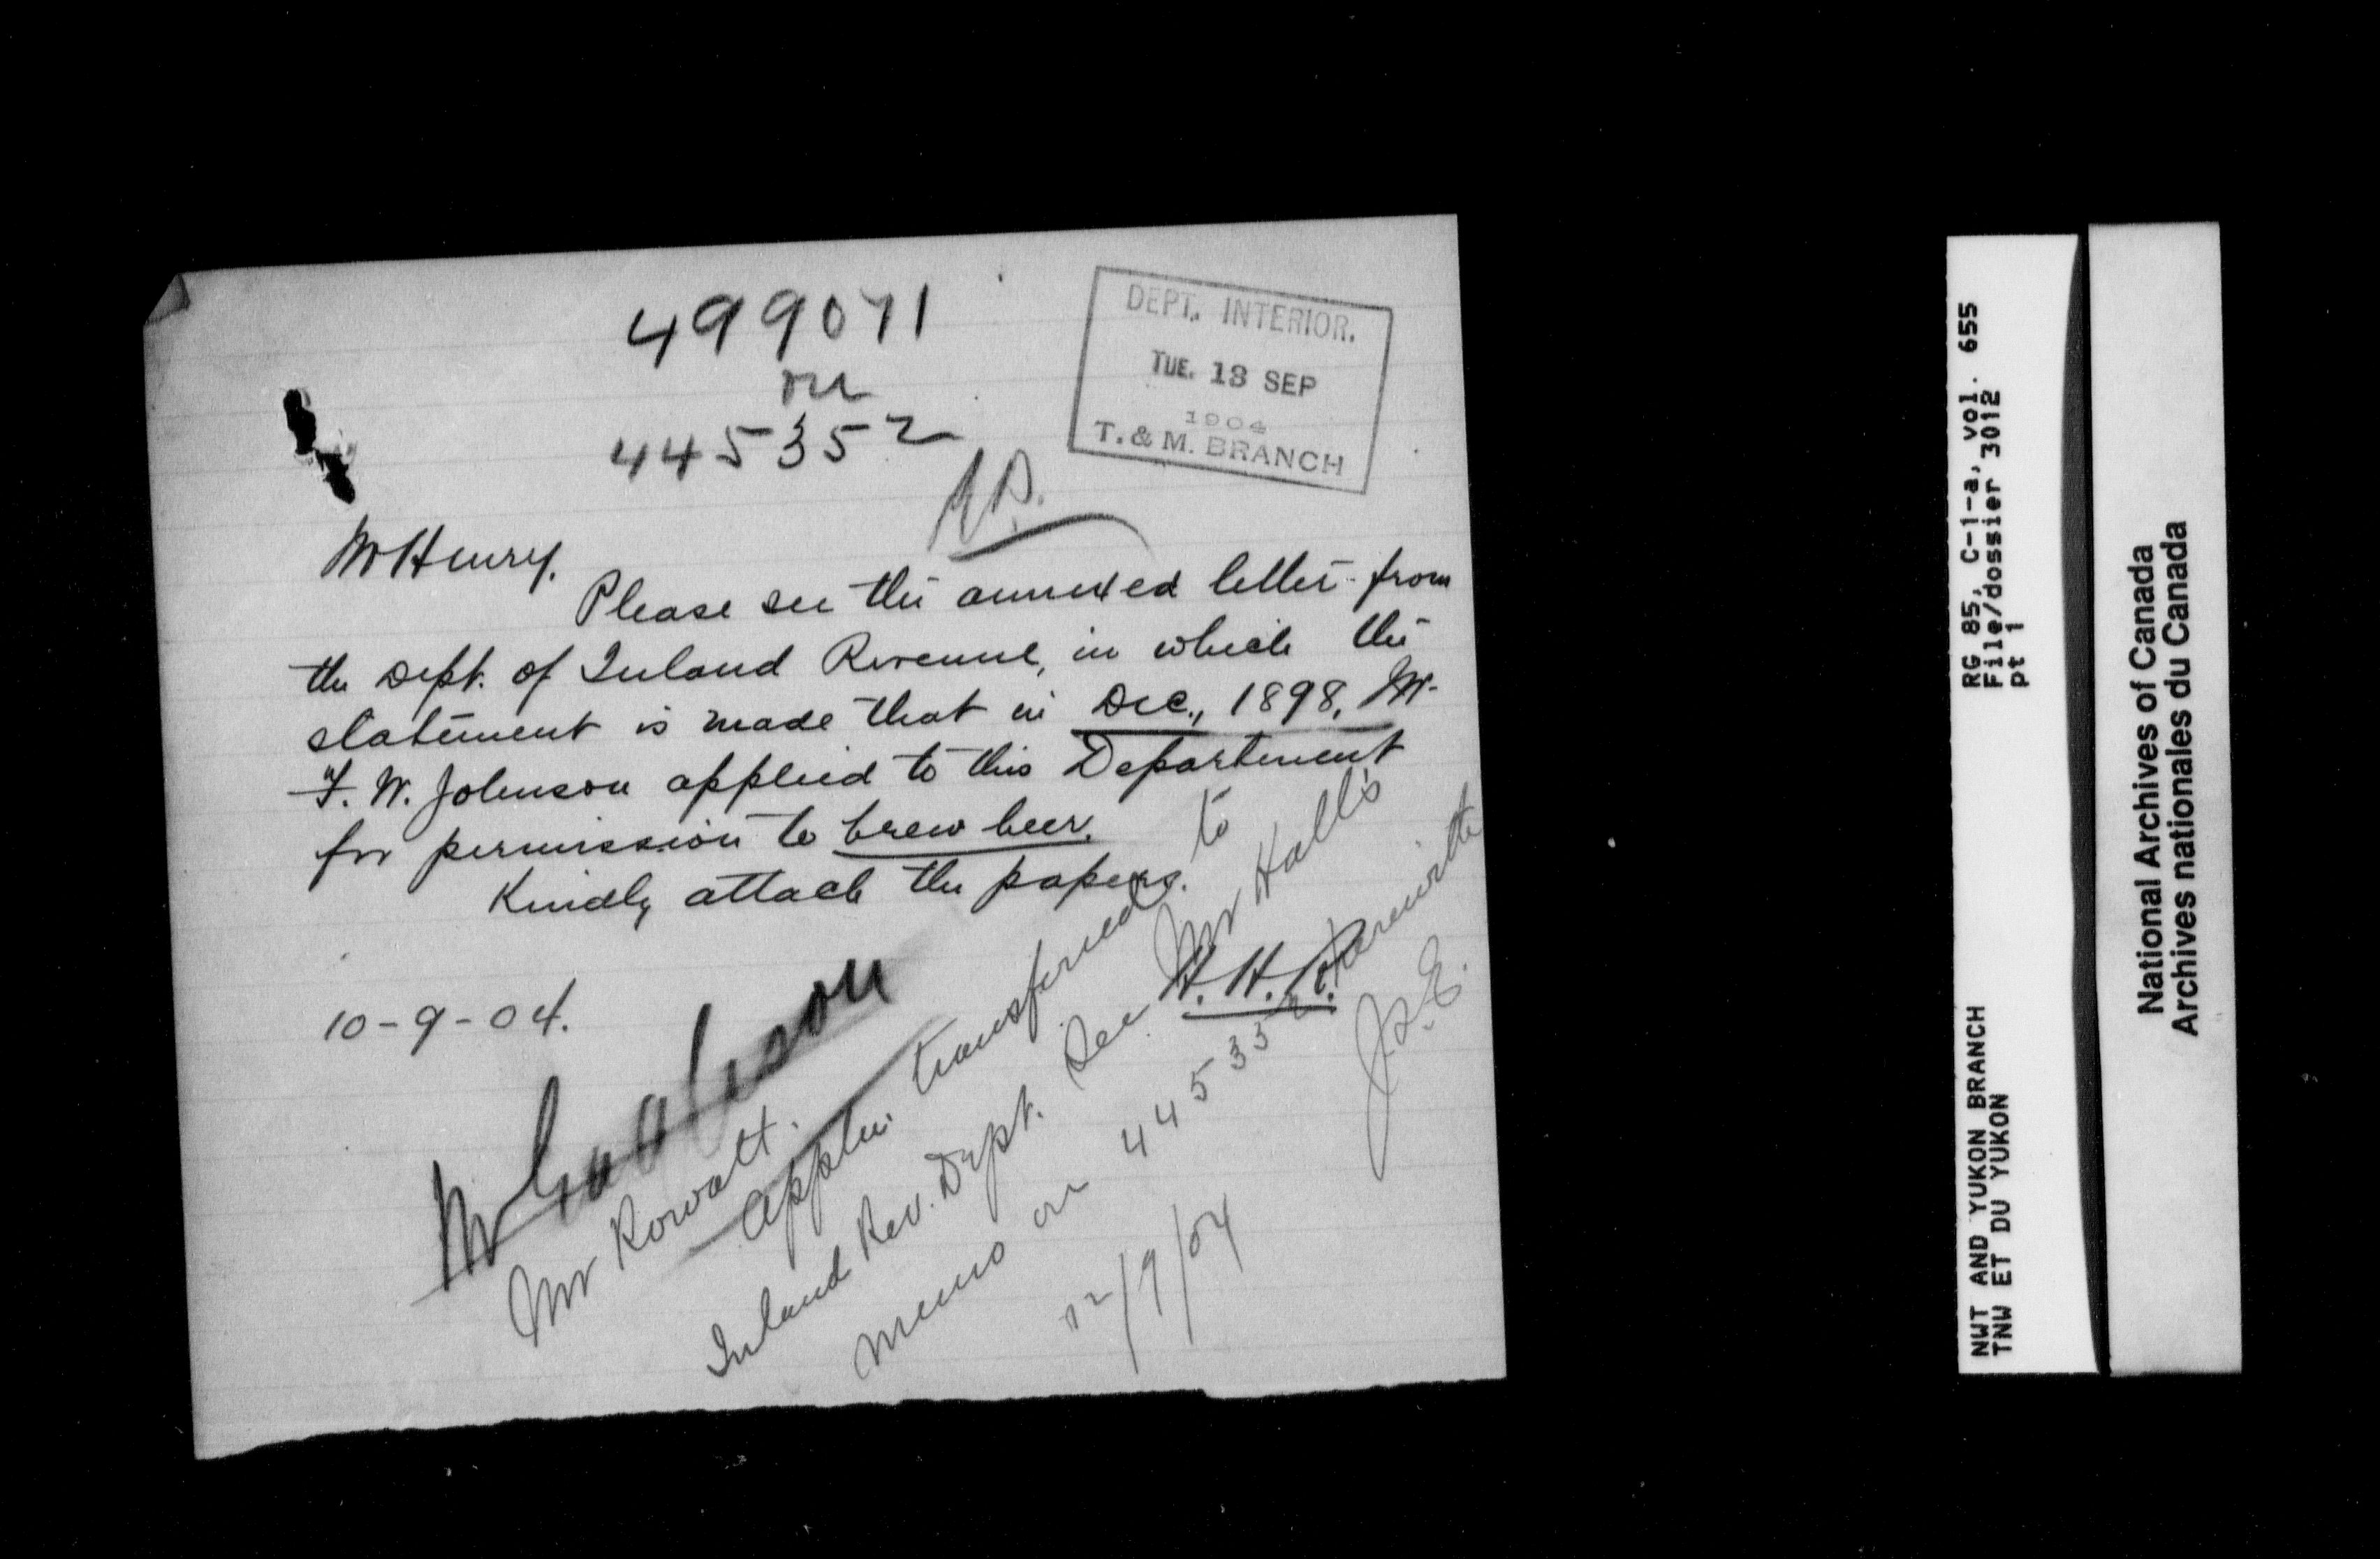 499071
on
445352
DEPT. INTERIOR.
TUE. 13 SEP
1904
T. & M. BRANCH
Mr Henry.
Please see the annexed letter from
the Dept. of Inland Revenue, in which the
statement is made that in Dec., 1898, Mr
F. W. Johnson applied to this Department
for permission to brew beer.
Kindly attach the papers.
H.H.R.
10-9-04.
Mr
Mr Rowatt.
Appln. transferred to
Inland Rev. Dept. See Mr Hall's
memo on 445352 herewith
12/9/04
RG 85, C-1-a, vol. 655
File/dossier 3012
pt 1
NWT AND YUKON BRANCH
TNW ET DU YUKON
National Archives of Canada
Archives nationales du Canada